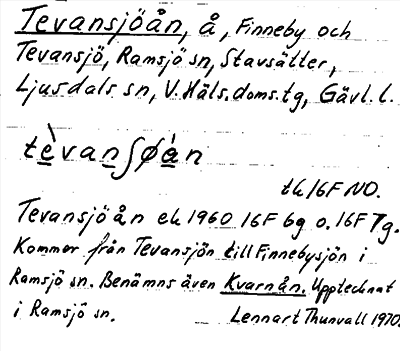 Tevansjöån, å, Finneby och
Tevansjö, Ramsjö sn, Stavsätter,
Ljusdals sn, V. Häls. doms. tg, Gävl. l.
tèvanʃøán
tk 16F NO.
Tevansjöån ek 1960 16F 6g o. 16F 7g.
Kommer från Tevansjön till Finnebysjön i
Ramsjö sn. Benämns även Kvarnån. Upptecknat
i Ramsjö sn. Lennart Thunvall 1970.